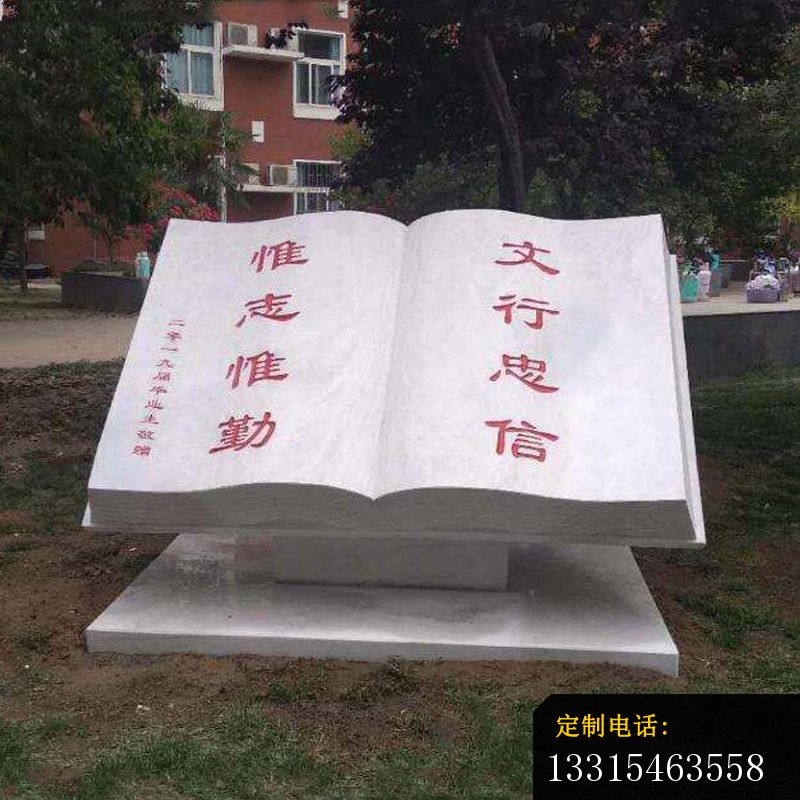 文行忠信
惟志惟勤
二零一九届毕业生敬赠
定制电话:
13315463558